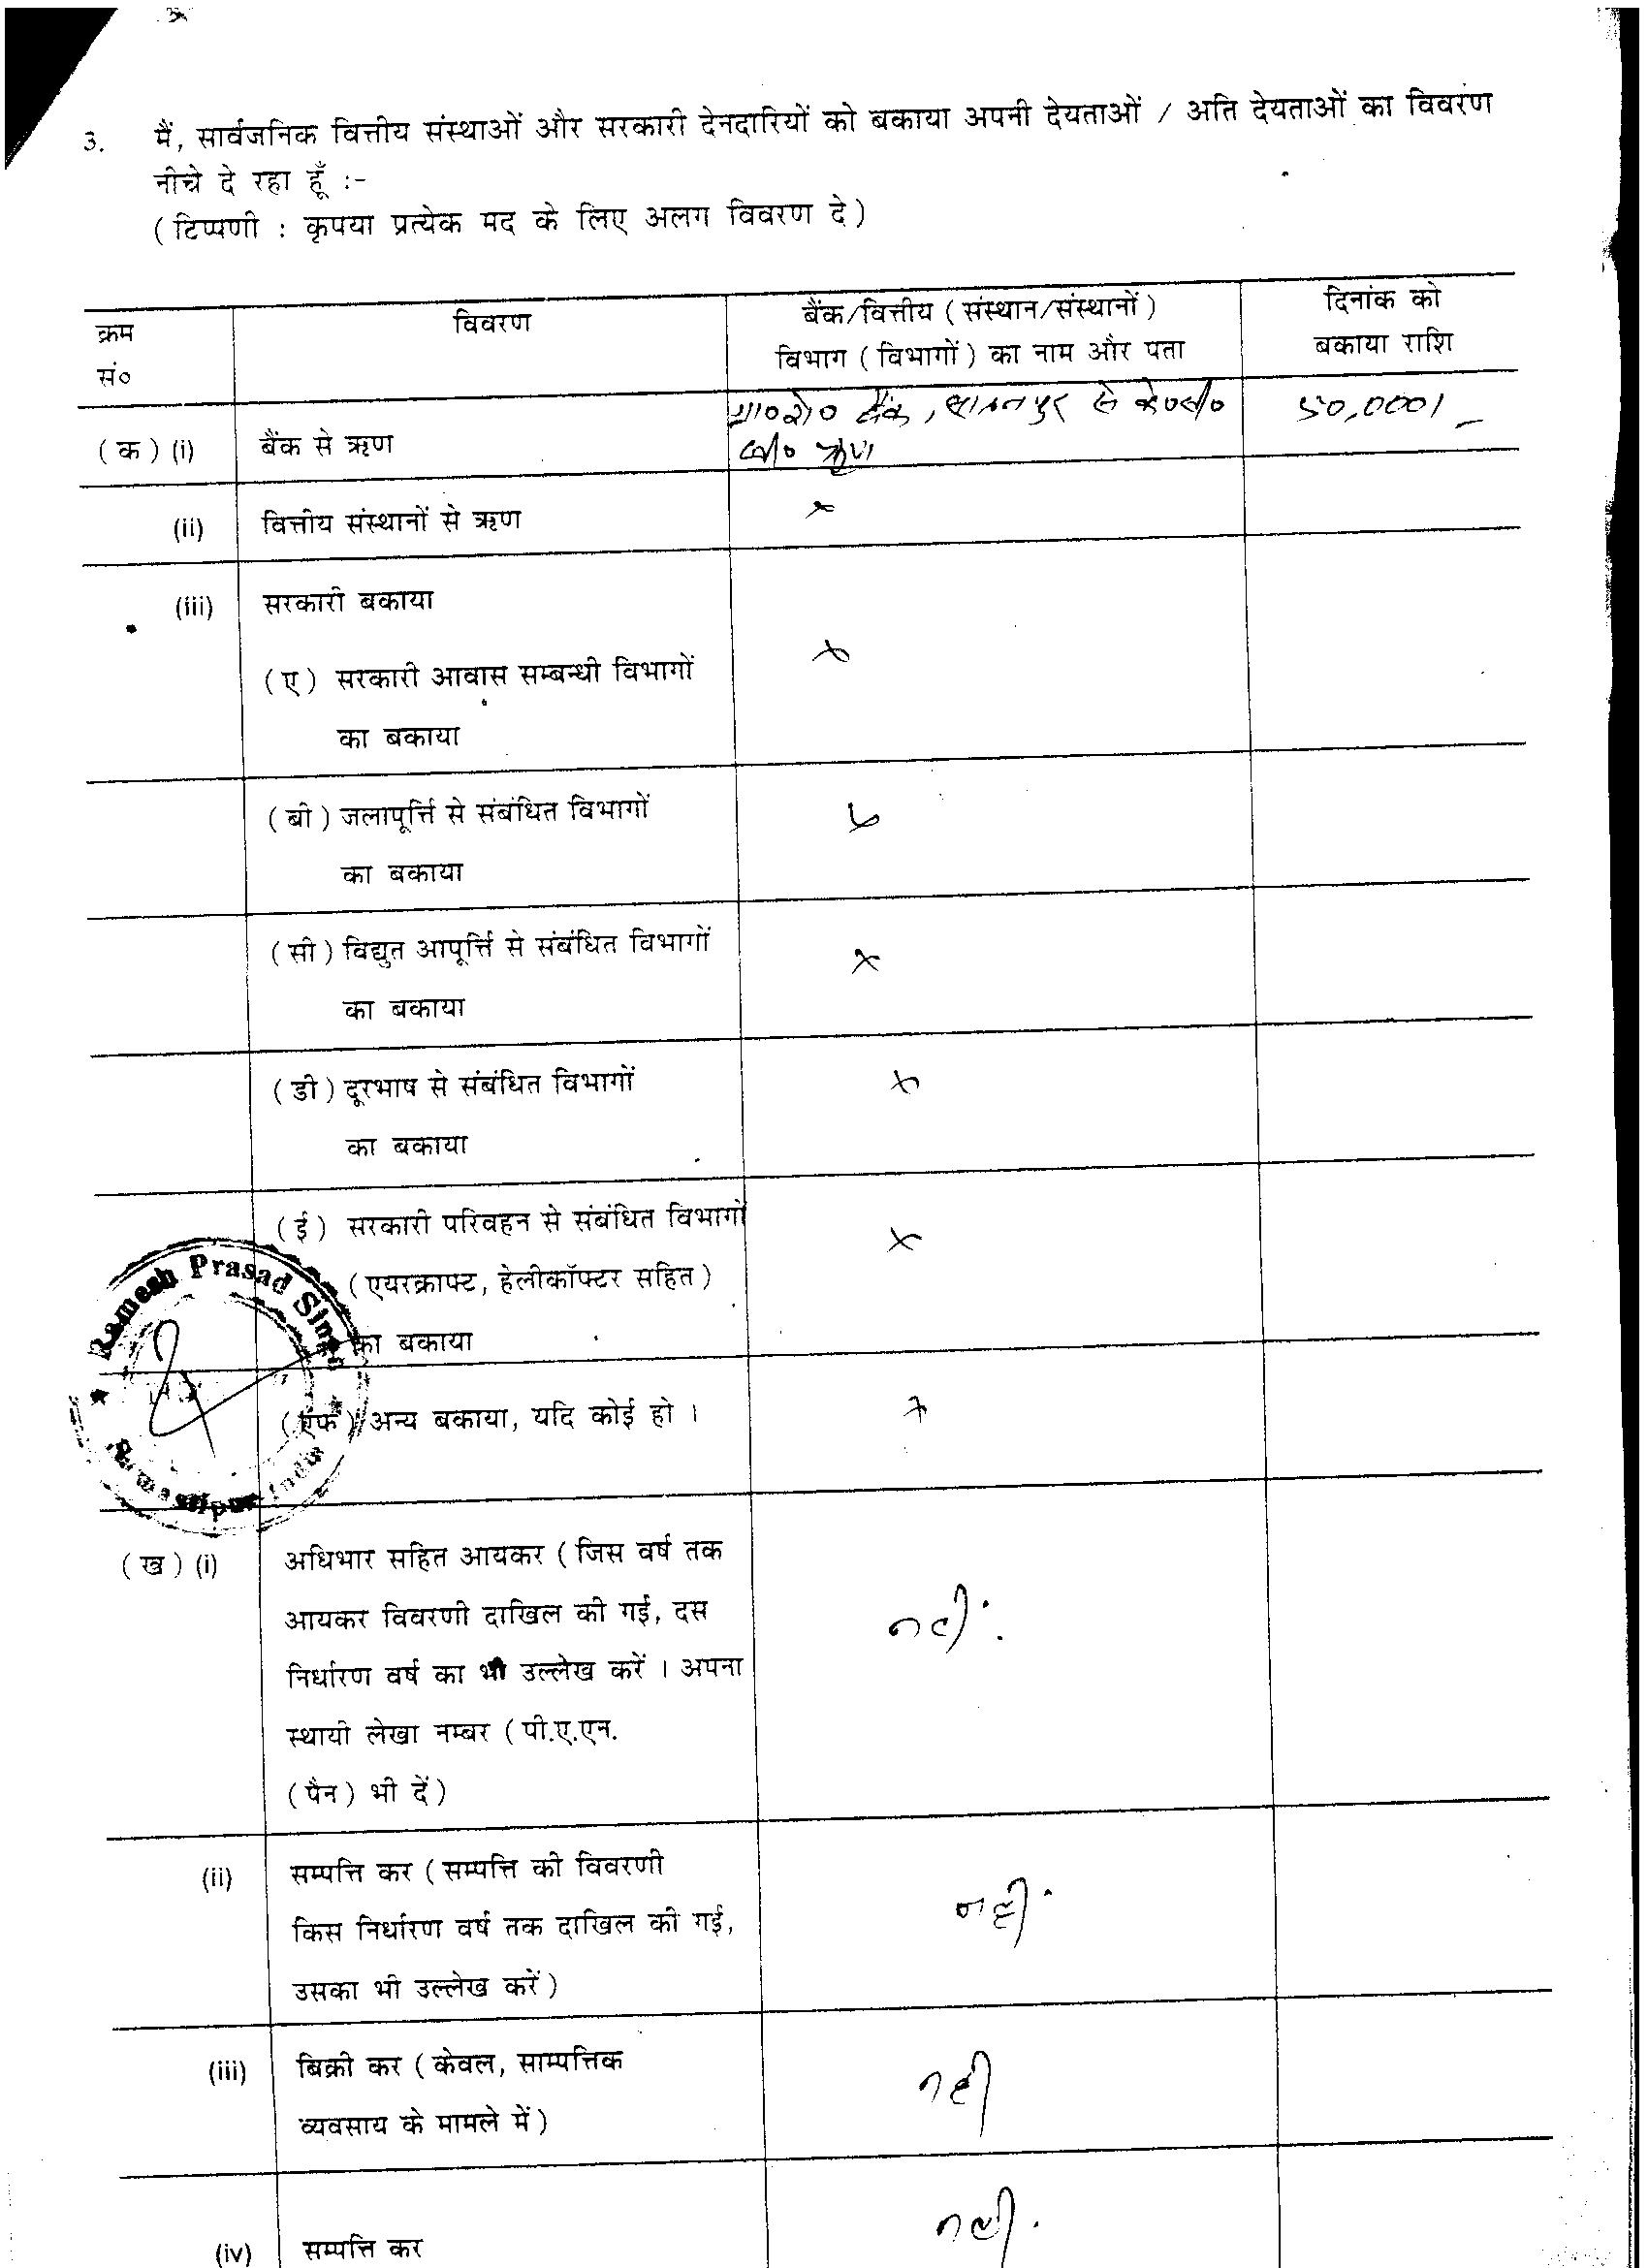 3. मैं, सार्वजनिक वित्तीय संस्थाओं और सरकारी देनदारियों को बकाया अपनी देयताओं / अति देयताओं का विवरण
नीचे दे रहा हूँ :-
(टिप्पणी : कृपया प्रत्येक मद के लिए अलग विवरण दे)
क्रम
सं०
विवरण
बैंक/वित्तीय (संस्थान/संस्थानों)
विभाग (विभागों) का नाम और पता
दिनांक को
बकाया राशि
(क) (i) बैंक से ऋण
ग्रा०क्षे० बैंक, से के०सी०
ऋण
50,000/-
(ii) वित्तीय संस्थानों से ऋण ×
(iii) सरकारी बकाया
(ए) सरकारी आवास सम्बन्धी विभागों ×
का बकाया
(बी) जलापूर्त्ति से संबंधित विभागों ×
का बकाया
(सी) विद्युत आपूर्त्ति से संबंधित विभागों ×
का बकाया
(डी) दूरभाष से संबंधित विभागों ×
का बकाया
(ई) सरकारी परिवहन से संबंधित विभागों ×
(एयरक्राफ्ट, हेलीकॉप्टर सहित)
का बकाया
(एफ) अन्य बकाया, यदि कोई हो । ×
Ramesh Prasad Singh
Samastipur India
(ख) (i) अधिभार सहित आयकर (जिस वर्ष तक
आयकर विवरणी दाखिल की गई, दस नहीं
निर्धारण वर्ष का भी उल्लेख करें । अपना
स्थायी लेखा नम्बर (पी.ए.एन.
(पैन) भी दें)
(ii) सम्पत्ति कर (सम्पत्ति की विवरणी
किस निर्धारण वर्ष तक दाखिल की गई, नहीं
उसका भी उल्लेख करें)
(iii) बिक्री कर (केवल, साम्पत्तिक नही
व्यवसाय के मामले में)
(iv) सम्पत्ति कर नही